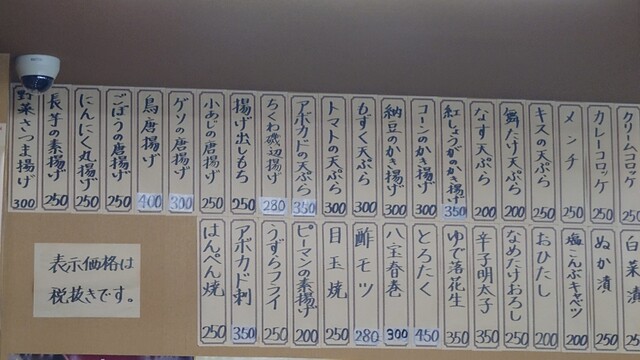 クリームコロッケ 250
カレーコロッケ 250
メンチ 250
キスの天ぷら 250
舞たけ天ぷら 200
なす天ぷら 200
紅しょうがのかき揚げ 350
コーンのかき揚げ 300
納豆のかき揚げ 300
もずく天ぷら 300
トマトの天ぷら 300
アボカドの天ぷら 350
ちくわ磯辺揚げ 280
揚げ出しもち 250
小あじの唐揚げ 250
ゲソの唐揚げ 300
鳥唐揚げ 400
ごぼうの唐揚げ 250
にんにく丸揚げ 250
長芋の素揚げ 250
野菜さつま揚げ 300
白菜漬
ぬか漬 250
塩こんぶキャベツ 200
おひたし 200
なめたけおろし 250
辛子明太子 350
ゆで落花生 350
とろたく 450
八宝春巻 300
酢モツ 280
目玉焼 250
ピーマンの素揚げ 200
うずらフライ 250
アボカド刺 350
はんぺん焼 250
表示価格は
税抜きです。